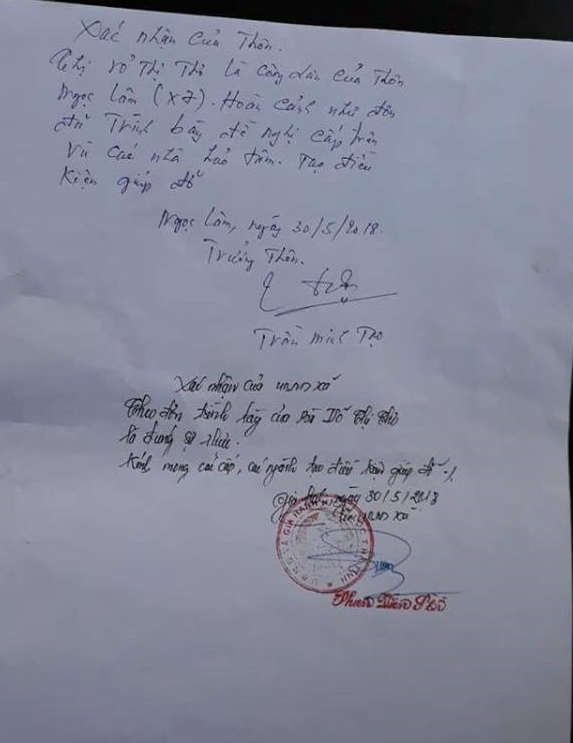 Xác nhận của Thôn.
Chị Võ Thị Thỏ là công dân của Thôn
Ngọc Lâm (X7). Hoàn cảnh như đơn
đã Trình bày đề nghị cấp trên
và các nhà hảo tâm. Tạo điều
Kiện giúp đỡ
Ngọc Lâm, ngày 30/5/2018
Trưởng Thôn.
Trần Minh Thọ
Xác nhận của UBND xã
Theo đơn trình bày của bà Võ Thị Thỏ
là đúng sự thực.
Kính mong các cấp, các ngành tạo điều kiện giúp đỡ ./.
ngày 30/5/2018
UBND xã
Phan